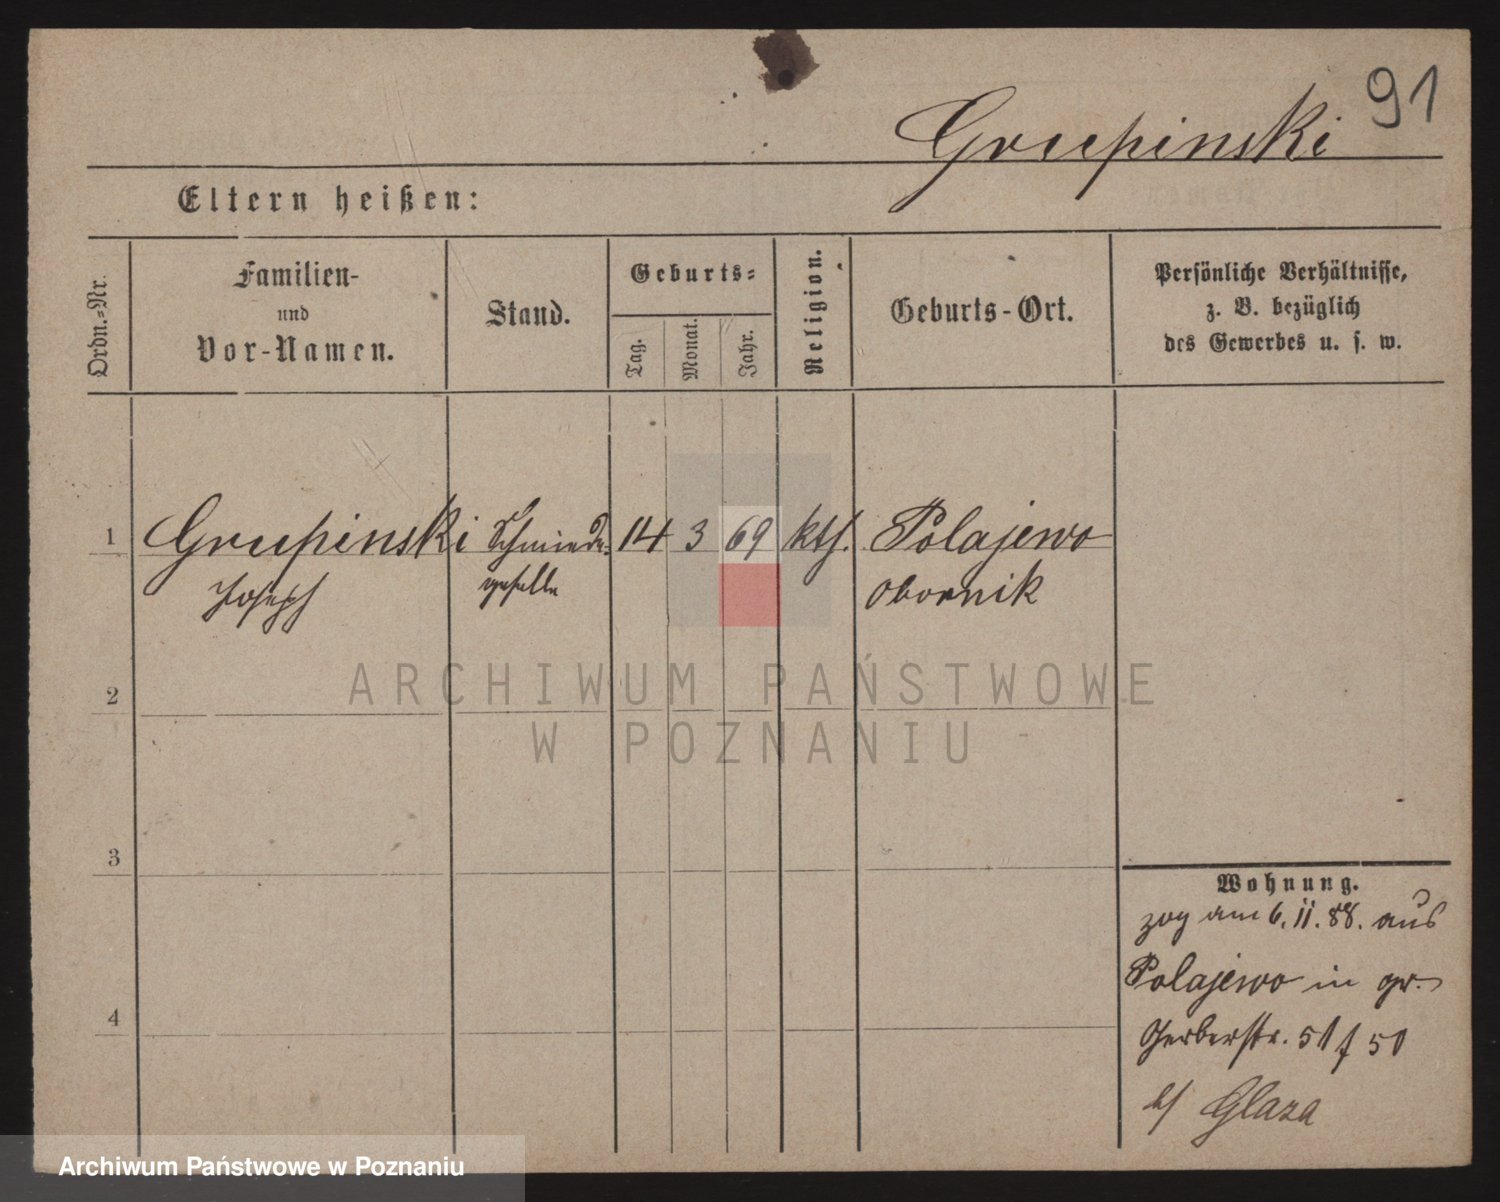 91
Grupinski
Eltern heißen:
Ordn.-Nr.
Familien-
und
Vor-Namen.
Stand.
Geburts-
Tag.
Monat.
Jahr.
Religion.
Geburts-Ort.
Persönliche Verhältnisse,
z. B. bezüglich
des Gewerbes u. s. w.
1 Grupinski Schmiede- 14 3 69 kth. Polajewo
Joseph geselle Obornik
ARCHIWUM PAŃSTWOWE
W POZNANIU
2
3
4
Wohnung.
zog am 6. 11. 88. aus
Polajewo in gr.
Gerberstr. 51 f 50
b/ Glaza
Archiwum Państwowe w Poznaniu